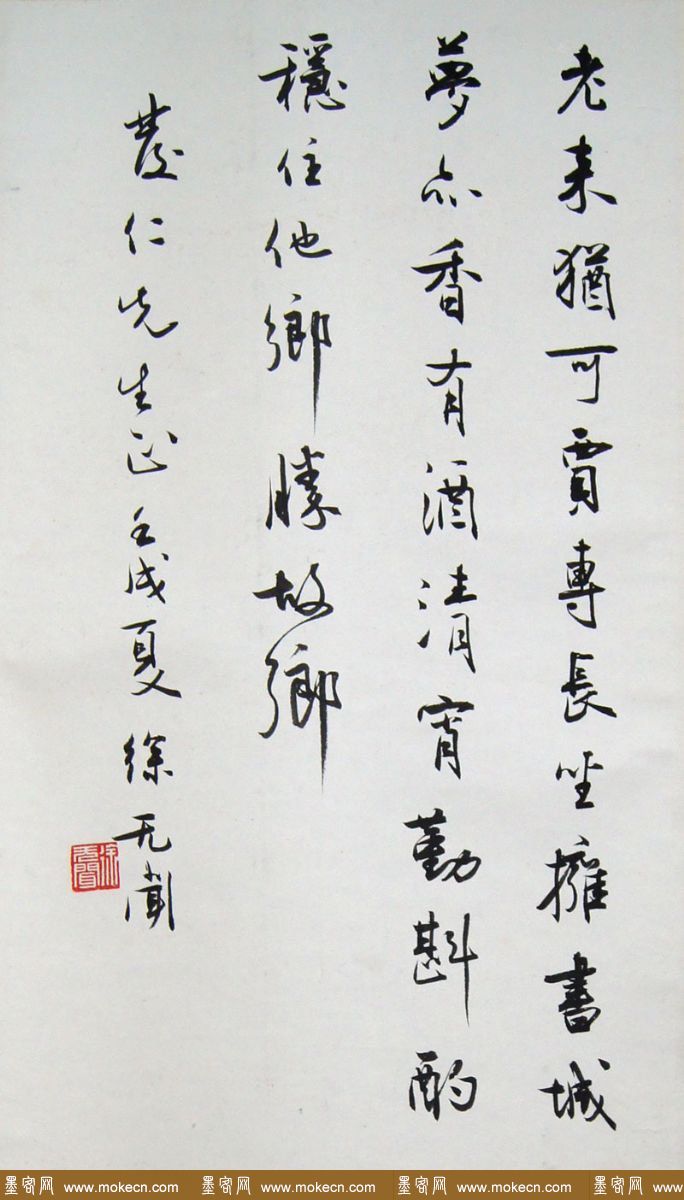 老来猶可賈專長坐擁書城
夢亦香有酒清宵勤斟酌
穩住他鄉勝故鄉
仁先生正壬戌夏徐无聞
徐无聞
墨客网 www.mokecn.com 墨客网 www.mokecn.com 墨客网 www.mokecn.com 墨客网 www.mokecn.com 墨客网 www